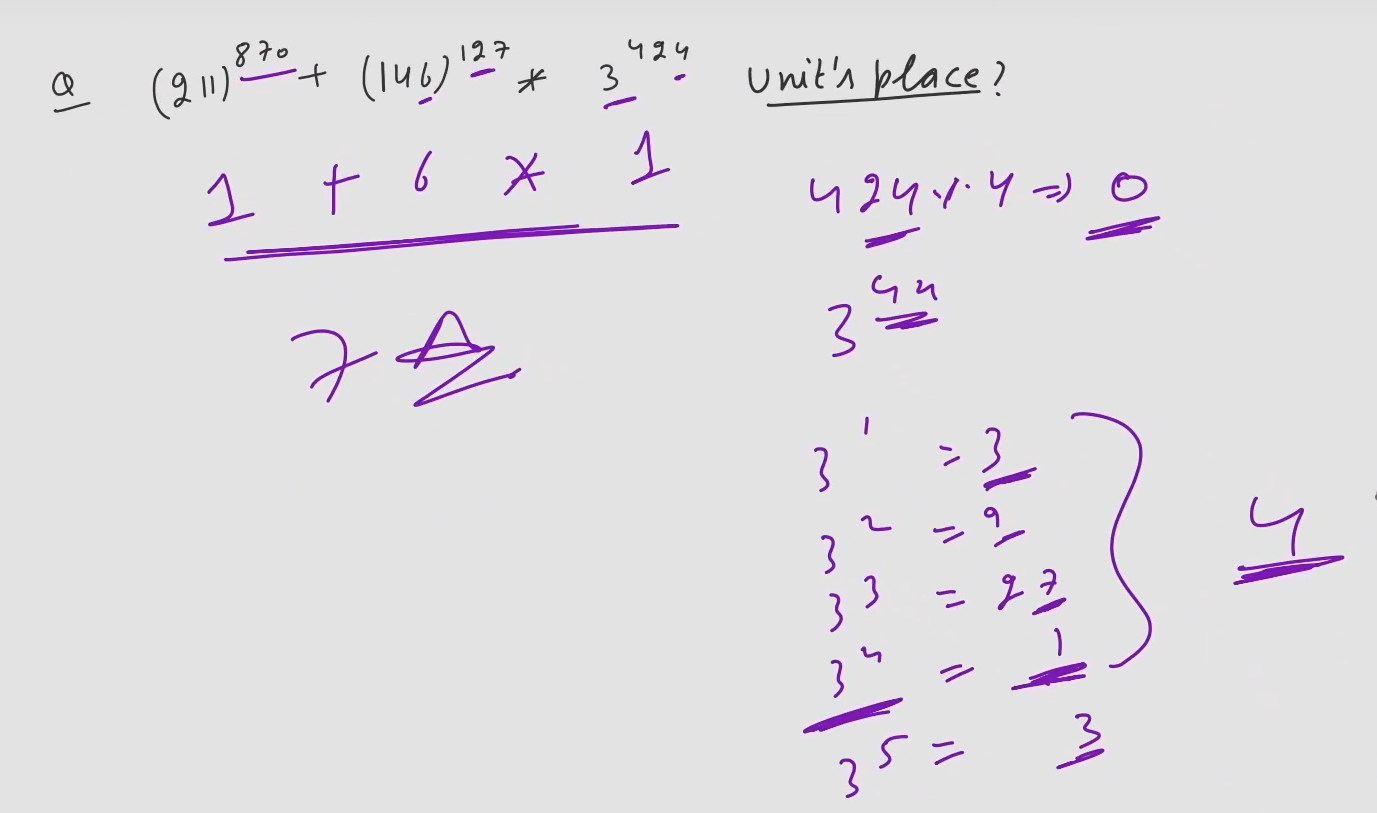 Q (211)^870 + (146)^127 * 3^424 Unit's place?
1 + 6 * 1
424 % 4 => 0
3^44
7 A
3^1 = 3
3^2 = 9
4
3^3 = 27
3^4 = 1
3^5 = 3